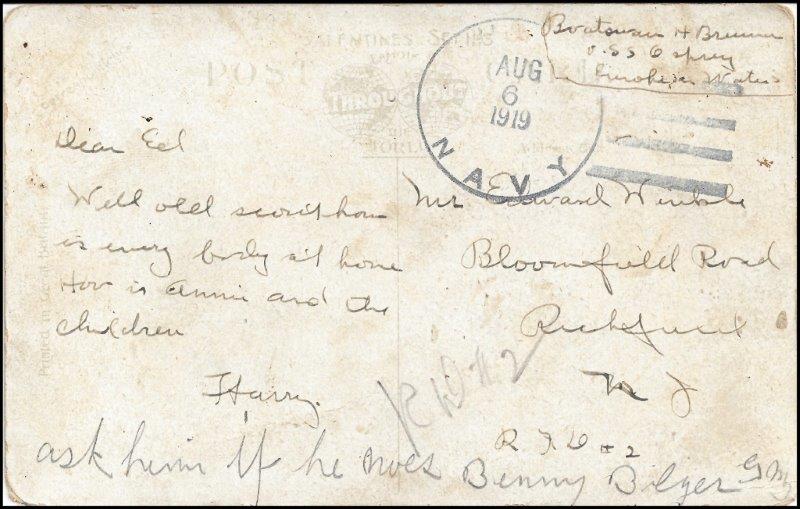 VALENTINES SERIES
POST
THROUGHOUT
THE
WORLD
AUG
6
1919
NAVY
Boatswain H Brunner
U.S.S Osprey
in European Waters
Dear Ed
Well old scout how
is every body at home
How is Annie and the
children
Harry.
Mr Edward Winkle
Bloomfield Road
Richfield
N J
R.F.D #2
R.D #2
ask him if he noes Benny Bilger
Printed in Great Britain